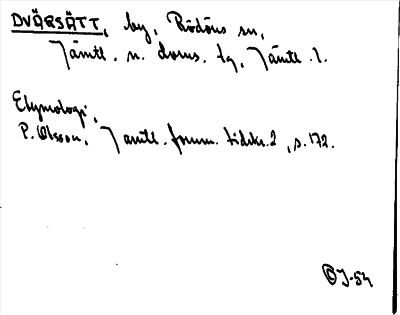 DVÄRSÄTT, by, Rödöns sn,
Jämtl. n. doms. tg, Jämtl. l.
Etymologi,
P. Olsson, Jämtl. fornm. tidskr. 2, s. 172.
J-54